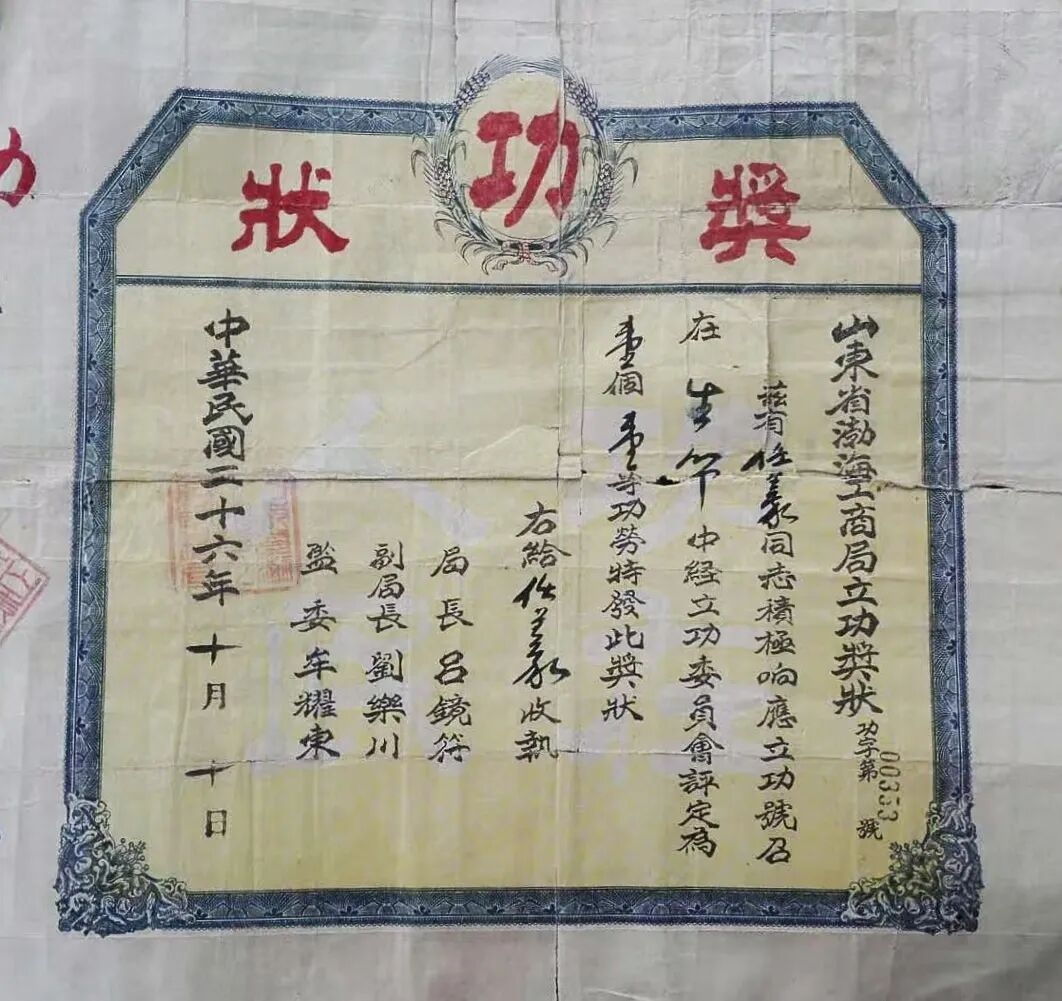 獎功狀
山東省渤海工商局立功獎狀
功字第00353號
茲有任義同志積極响應立功號召
在生節中経立功委員會評定為
壹個壹等功勞特發此獎狀
右給任義收執
局長呂鏡符
副局長劉樂川
監委牟耀東
中華民國三十六年十月十日
功